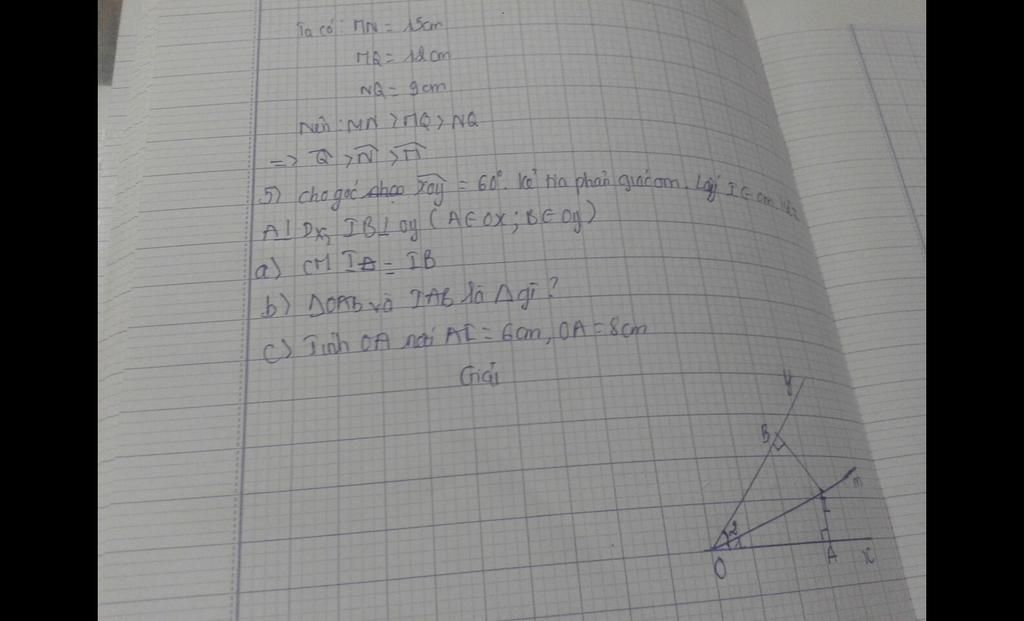 Ta có: MN = 15cm
MQ = 12cm
NQ = 9cm
Nên: MN > MQ > NQ
=> Q̂ > N̂ > M̂
5) Cho góc xOy = 60°. Kẻ tia phân giác om. Lấy I ∈ om
A ⊥ Ox, IB ⊥ oy (A ∈ OX; B ∈ Oy)
a) CM IA = IB
b) ΔOAB và IAB là Δ gì?
c) Tính OA nếu AI = 6cm, OA = 8cm
Giải
y
B
m
2
1
I
O
A
x